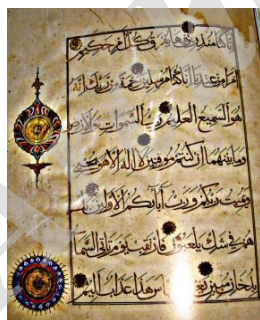 إنا كنا منذرين فيها يفرق كل أمر حكيم
أمرا من عندنا إنا كنا مرسلين رحمة من ربك إنه
هو السميع العليم رب السموات والأرض
وما بينهما إن كنتم موقنين لا إله إلا هو يحيي
ويميت ربكم ورب آبائكم الأولين بل
هم في شك يلعبون فارتقب يوم تأتي السما
بدخان مبين يغشى الناس هذا عذاب أليم